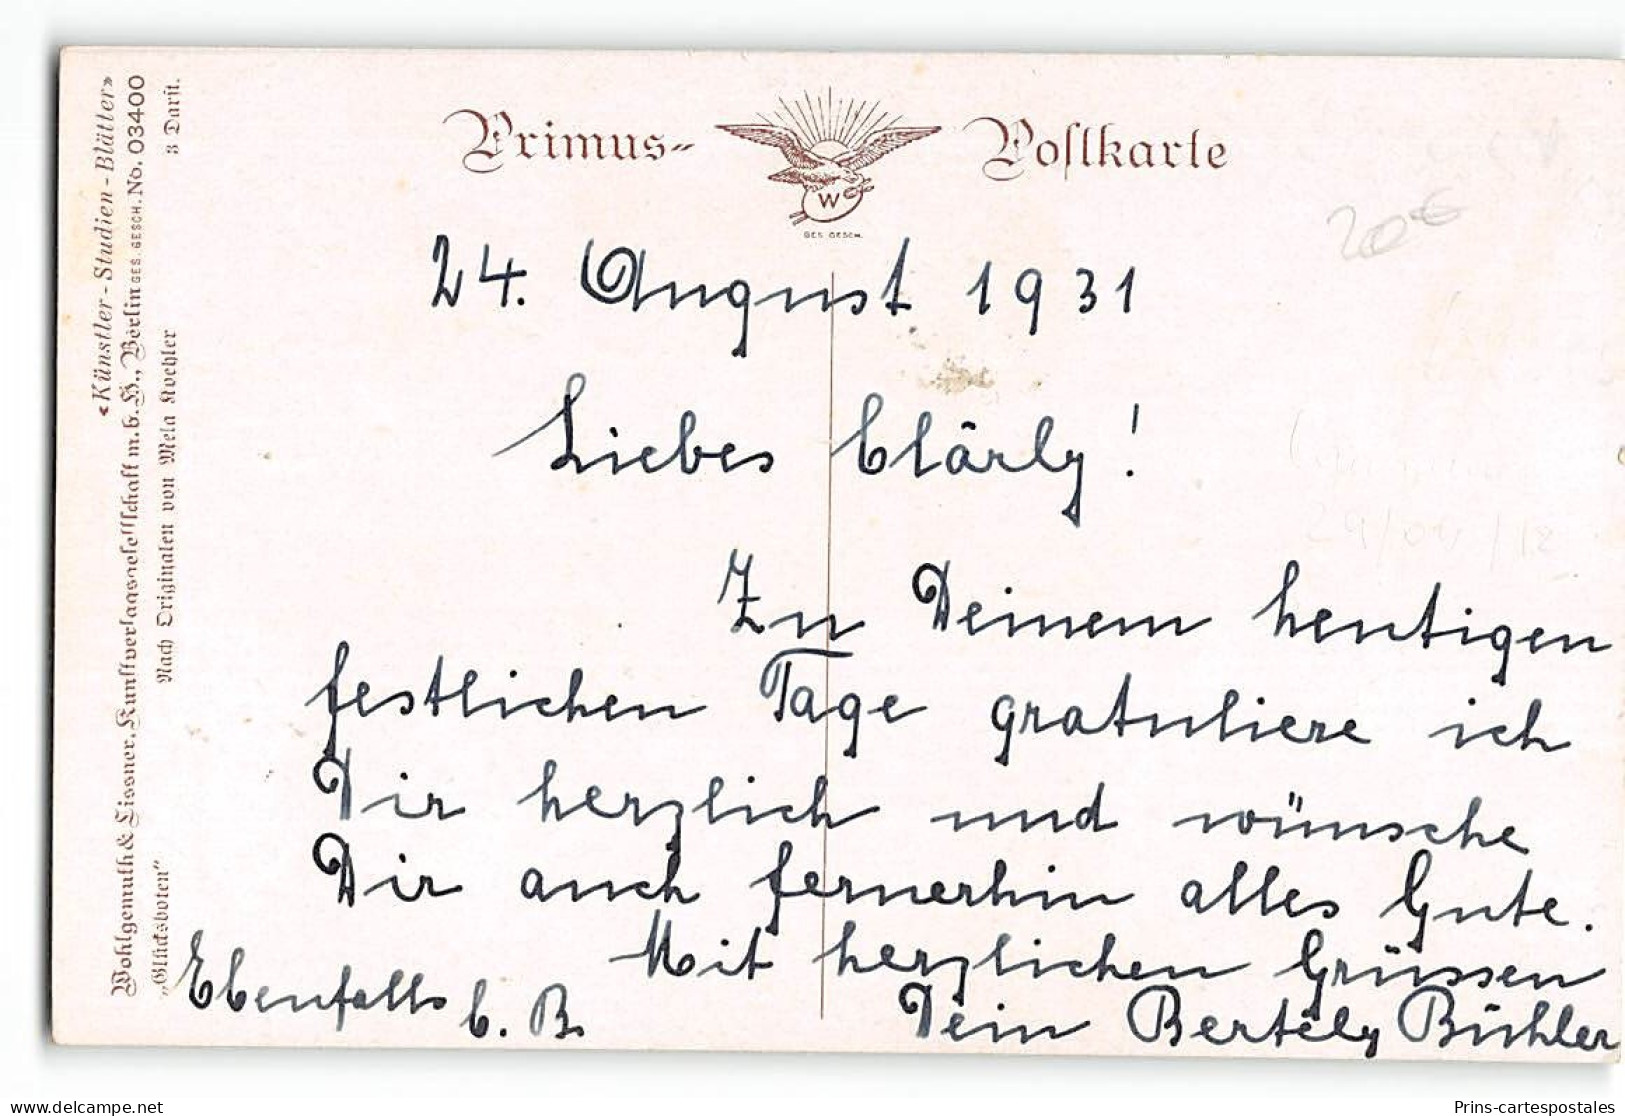 Primus-Postkarte
W
GES. GESCH.
20€
24. August 1931
Liebes Clärly!
Zu Deinem heutigen
festlichen Tage gratuliere ich
Dir herzlich und wünsche
Dir auch fernerhin alles Gute.
Mit herzlichen Grüssen
Dein Bertely Bühler
Ebenfalls C. B.
«Künstler-Studien-Blätter»
Wohlgemuth & Lissner, Kunstverlagsgesellschaft m.b.H., Berlin GES. GESCH. No. 03400
„Glücksboten“ Nach Originalen von Mela Koehler 3 Darst.
29/04/12
Prins-cartespostales